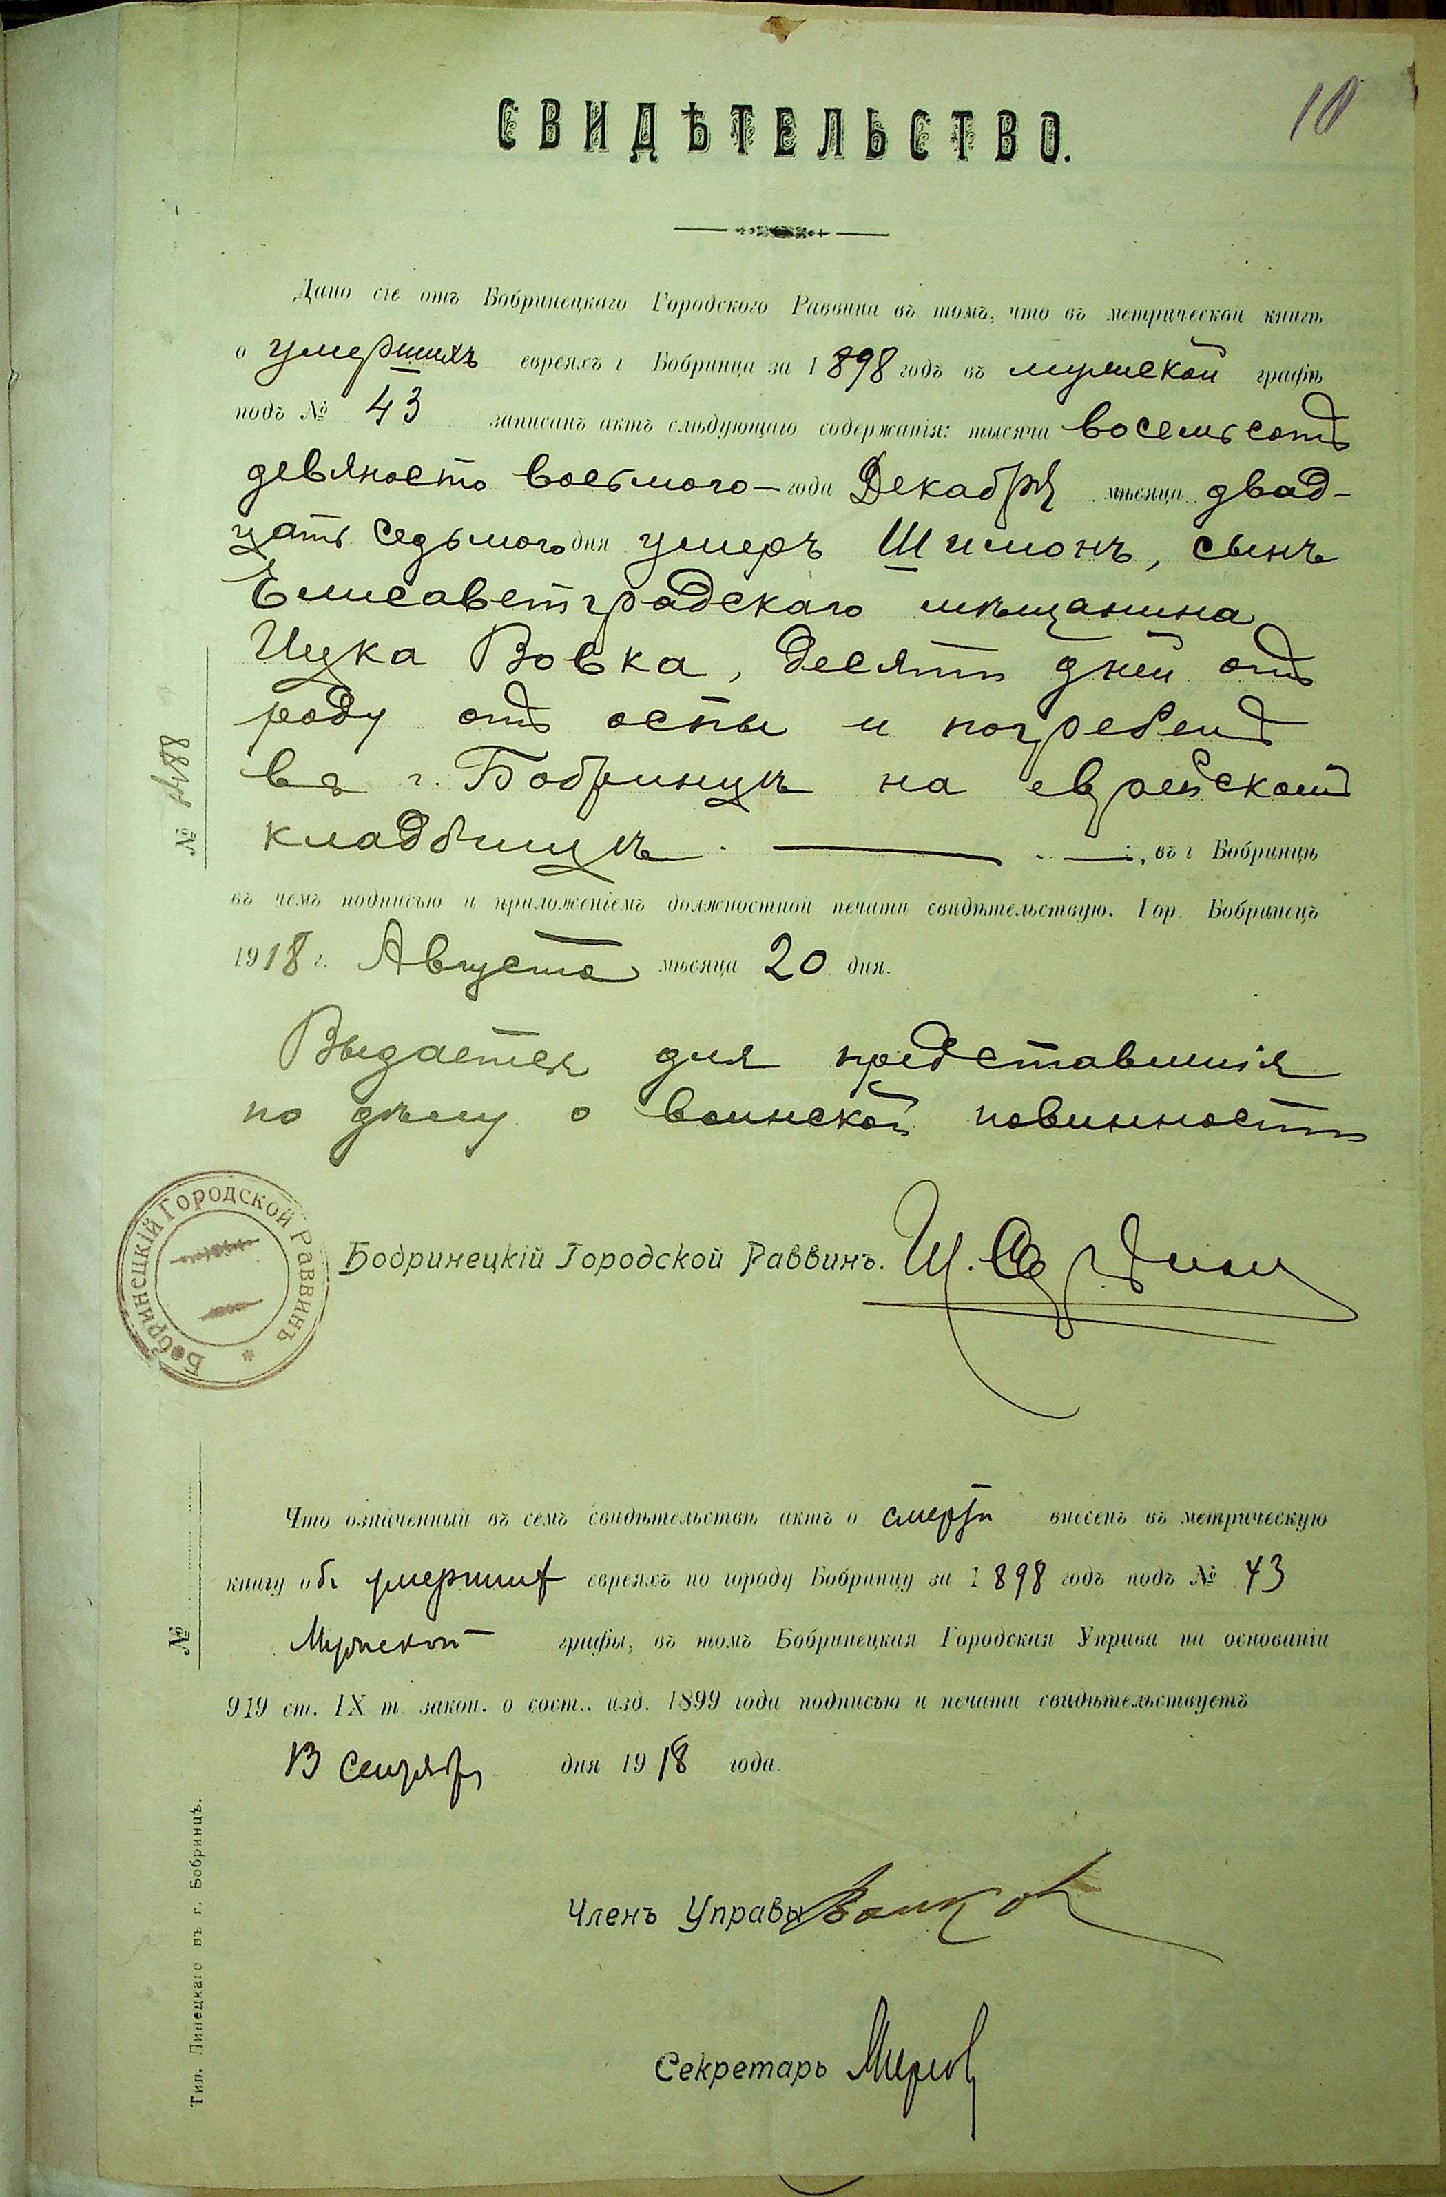 10
СВИДѢТЕЛЬСТВО.
Дано сіе отъ Бобринецкаго Городского Раввина въ томъ, что въ метрической книгѣ
о умершихъ евреяхъ г Бобринца за 1898 годъ въ мужской графѣ
подъ № 43 записанъ актъ слѣдующаго содержанія: тысяча восемьсотъ
девяносто восьмого— года Декабря мѣсяца двад-
цать седьмого дня умеръ Шимонъ, сынъ
Елисаветградскаго мѣщанина
Ицка Вовка, десяти дней отъ
роду отъ оспы и погребенъ
въ г. Бобринцѣ на еврейскомъ
кладбищѣ. въ г Бобринцѣ
въ чемъ подписью и приложеніемъ должностной печати свидѣтельствую. Гор. Бобринецъ
1918 г. Августа мѣсяца 20 дня.
Выдается для представленія
по дѣлу о воинской повинности
№
Бобринецкій Городской Раввинъ.
Бобринецкій Городской Раввинъ *
Что означенный въ семъ свидѣтельствѣ актъ о смерти внесенъ въ метрическую
книгу объ умершихъ евреяхъ по городу Бобринцу за 1898 годъ подъ № 43
Мужской графы, въ томъ Бобринецкая Городская Управа на основаніи
919 ст. IX т. закон. о сост.. изд. 1899 года подписью и печати свидѣтельствуетъ
13 Сентяб дня 1918 года.
№
Членъ Управы Волков
Секретарь
Тип. Линецкаго въ г. Бобринцѣ.